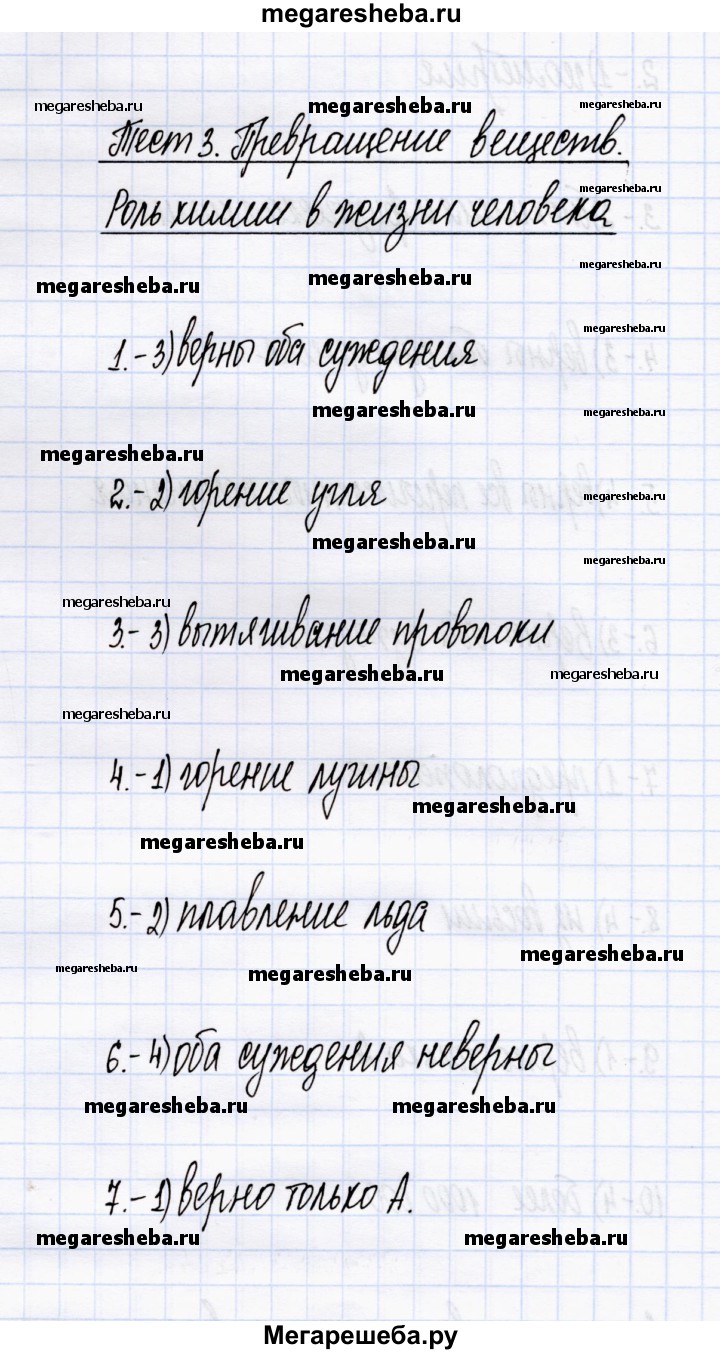 megaresheba.ru
megaresheba.ru megaresheba.ru megaresheba.ru
Тест 3. Превращение веществ.
megaresheba.ru
Роль химии в жизни человека
megaresheba.ru megaresheba.ru megaresheba.ru
megaresheba.ru
1.-3) верны оба суждения
megaresheba.ru megaresheba.ru
megaresheba.ru
2.-2) горение угля
megaresheba.ru megaresheba.ru
megaresheba.ru
3.-3) вытягивание проволоки
megaresheba.ru megaresheba.ru
megaresheba.ru
4.-1) горение лучины
megaresheba.ru
megaresheba.ru
5.-2) плавление льда
megaresheba.ru
megaresheba.ru megaresheba.ru
6.-4) оба суждения неверны
megaresheba.ru megaresheba.ru
7.-1) верно только А.
megaresheba.ru megaresheba.ru
Мегарешеба.ру